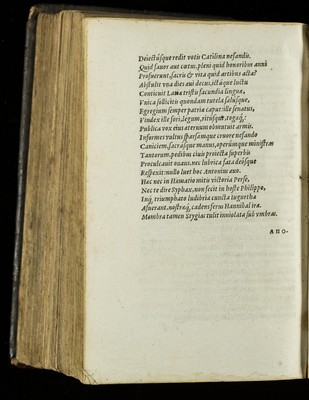 Deiectúsque redit votis Catilina nefandis.
Quid fauor aut cœtus, pleni quid honoribus anni
Profuerunt, sacris & vita quid artibus acta?
Abstulit vna dies æui decus, ictáque luctu
Conticuit Latiæ tristis facundia linguæ,
Vnica sollicitis quondam tutela salúsque,
Egregium semper patriæ caput: ille senatus,
Vindex ille fori, legum, ritúsque, togæq́;
Publica vox eius æternum obmutuit armis.
Informes vultus sparsámque cruore nefando
Caniciem, sacrásque manus, operúmque ministras
Tantorum, pedibus ciuis proiecta superbis
Proculcauit ouans, nec lubrica fata deósque
Respexit: nullo luet hoc Antonius æuo.
Hoc nec in Hæmatio mitis victoria Perse,
Nec te dire Syphax, non fecit in hoste Philippo,
Inq́; triumphato ludibria cuncta Iugurtha
Afuerant, nostræq́; cadens ferus Hannibal iræ.
Membra tamen Stygias tulit inuiolata sub vmbras.
ANO-